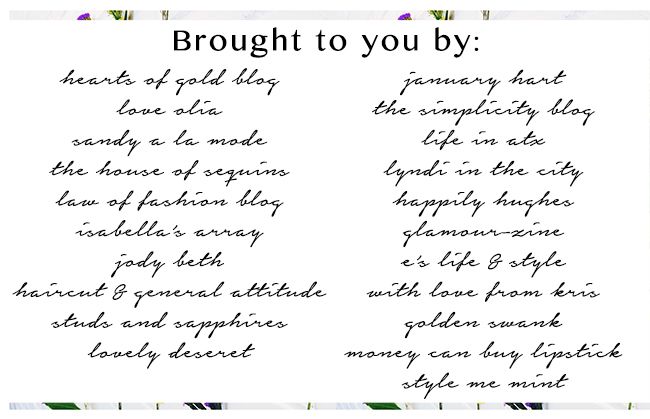 Brought to you by:
hearts of gold blog
love olia
sandy a la mode
the house of sequins
law of fashion blog
isabella's array
jody beth
haircut & general attitude
studs and sapphires
lovely deseret
january hart
the simplicity blog
life in atx
lyndi in the city
happily hughes
glamour-zine
e's life & style
with love from kris
golden swank
money can buy lipstick
style me mint